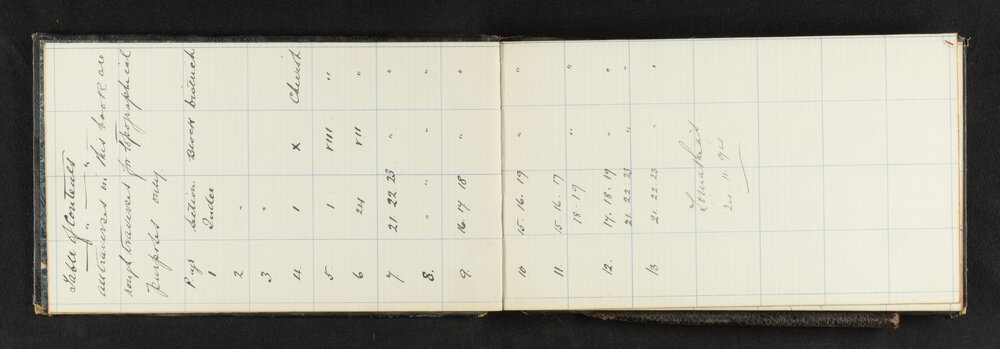 Table of Contents
" " "
all traverses in this book are
rough traverses for topographical
purposes only
Page Section Block District
1 Index
2 "
3 "
4 1 X
5 1 VIII "
6 24 VII "
7 21. 22. 23 " "
8. " " "
9. 16. 17. 18 " "
10 15. 16. 19 " "
11. 15. 16. 17 " "
18. 19
12. 17. 18. 19 " "
21. 22. 23 " "
13. 21. 22. 23 " "
24. 11. 94
1